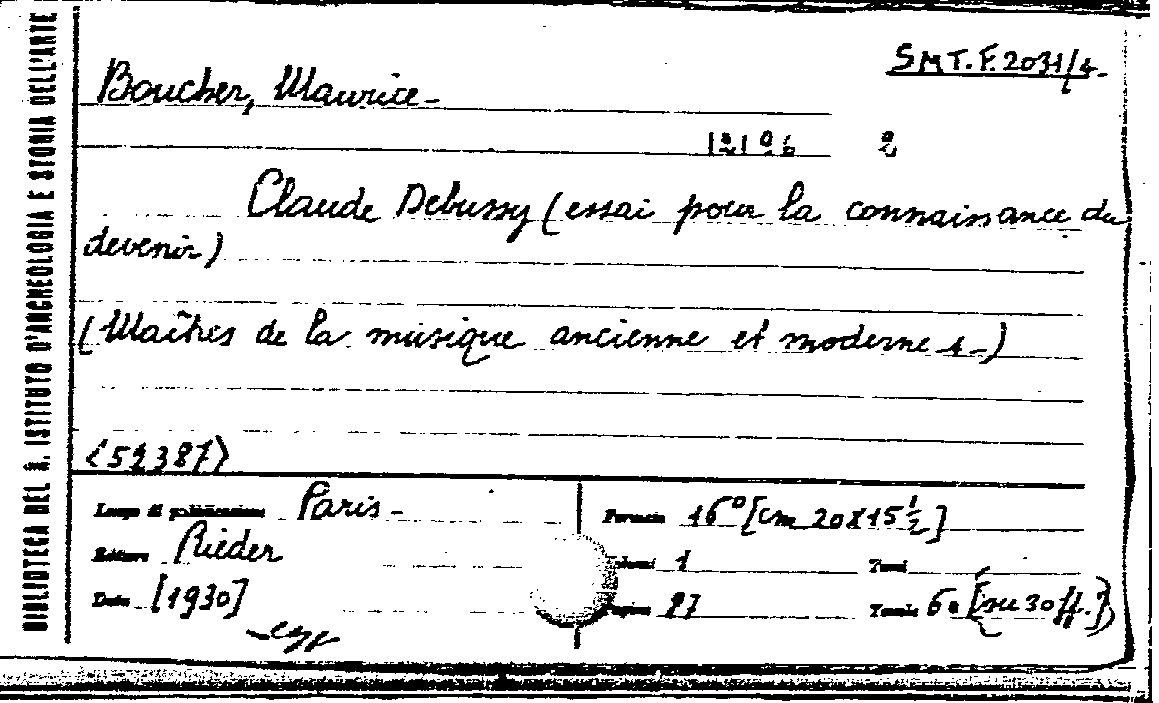 BIBLIOTECA DEL R. ISTITUTO D'ARCHEOLOGIA E STORIA DELL'ARTE
SMT.F.2031/4-
Boucher, Maurice-
12196 2
Claude Debussy (essai pour la connaissance du
devenir)
(Maîtres de la musique ancienne et moderne 4-)
<52387>
Luogo di pubblicazione Paris-
Formato 16° [cm 20x15 1/2]
Editore Rieder
Volumi 1 Tomi
Data [1930]
Pagine 87 Tavole 60 [su 30 ff.]